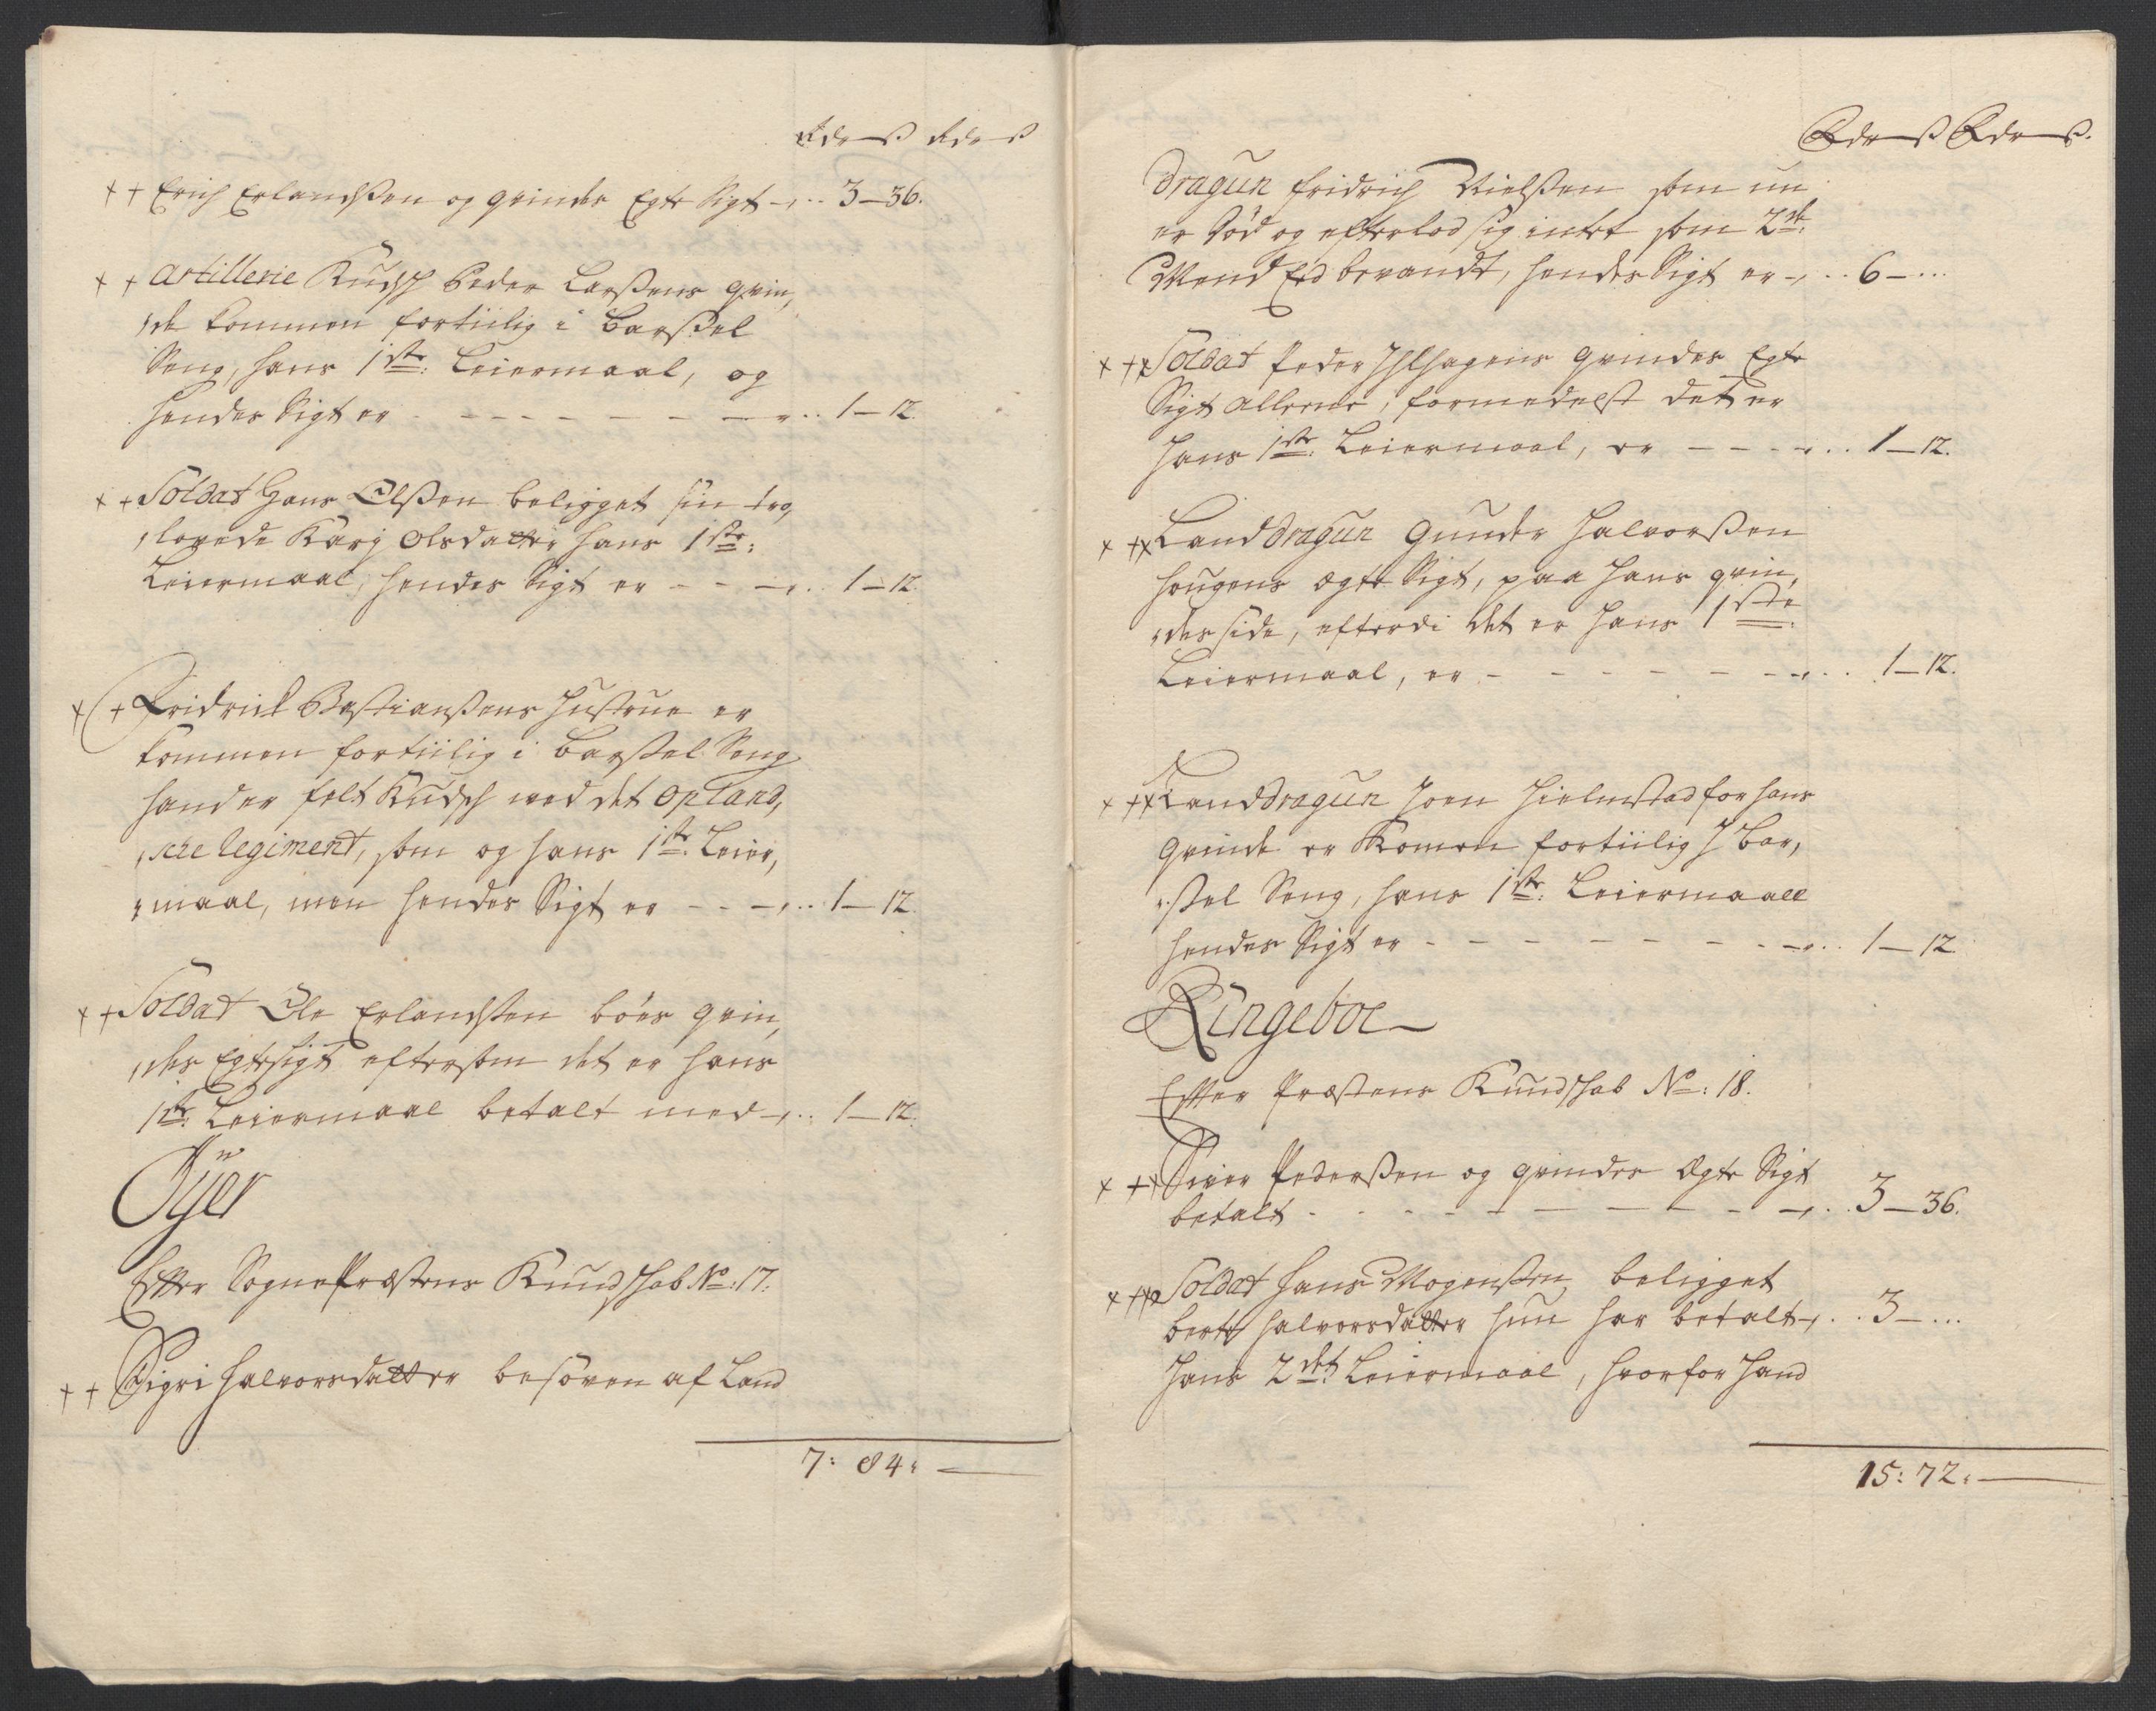 Rdr ß Rdr ß
++ Erich Erlandßen og qvindes Egte Sigt - 3 - 36.
++ Artillerie Kudsk Peder Larßens qvin,
,de kommen fortiilig i barßel
Seng, hans 1ste: Leiermaal, og
hendes Sigt er - - - 1 - 12
++ Soldat Hans Olßen beligget sin tro,
,lovede Karj Olsdatter hans 1ste:
Leiermaal, hendes Sigt er - - - 1 - 12.
++ Fridrick Bastianßens hustrue er
kommen fortiilig i barßel Seng
hand er felt Kudsk ved det opland,
,sche Regiment, som og hans 1ste: Leier,
,maal, men hendes Sigt er - - - 1 - 12.
++ Soldat Ole Erlandsßen böes qvin,
,des Egte sigt eftersom det er hans
1ste: Leiermaal betalt med - 1 - 12.
Öyer
Efter SognePræstens Kundskab No: 17.
++ Sigri Halvorsdatter besöven af Land
7: 84:
Rdr ß Rdr ß.
Dragun Fridrich Nielßen som nu
er död og efterlod sig intet som 2de
Mend Eed bevandt, hendes Sigt er - 6 - ...
+++ Soldat Peder Ihlhagens qvindes Egte
Sigt alleene, formedelst det er
hans 1ste: Leiermaal, er - - - 1 - 12.
+++ Land dragun Gunder Halvorßen
Haugens Egte Sigt, paa hans qvin,
,des side, efterdi det er hans 1ste:
Leiermaal, er - - - 1 - 12.
+++ Land dragun Joen Hielmstad for hans
qvinde er Komen fortiilig J bar,
,ßel Seng, hans 1ste: Leiermaall
hendes Sigt er - - - 1 - 12
Ringeboe
Efter Præstens Kundskab No: 18.
+++ Siver Pederßen og qvindes Egte Sigt
betalt - - - 3 - 36.
+++ Soldat Hans Mogenßen beligget
berte Halvorsdatter hun har betalt - 3 - ...
Hans 2det Leiermaal, hvorfor Hand
15: 72: